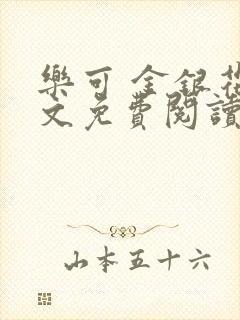 樂可 金銀花
文免費閱讀
山本五十六